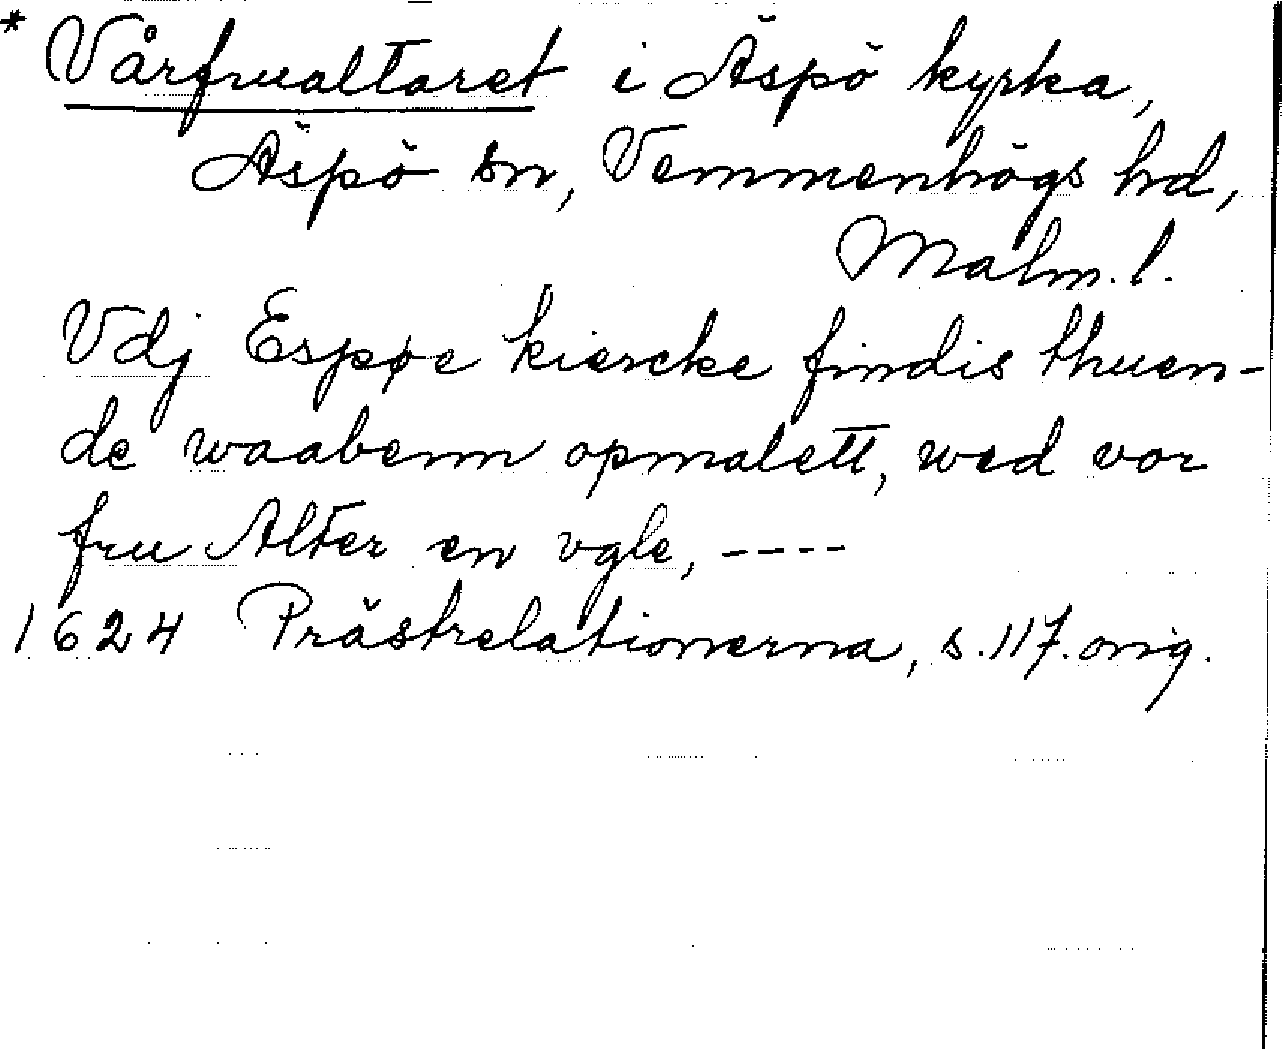 * Vårfrualtaret i Äspö kyrka,
Äspö sn, Vemmenhögs hd,
Malm. l.
Vdj Espøe kiercke findis thuen-
de waabenn opmalett, wed vor
fru Alter en vgle, ----
1624 Prästrelationerna, s. 117. orig.